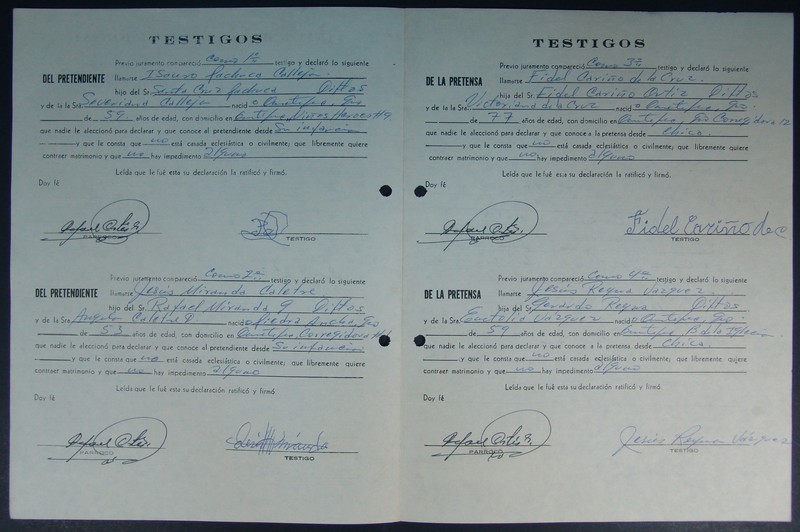 TESTIGOS
Previo juramento compareció Como 1º testigo y declaró lo siguiente
DEL PRETENDIENTE llamarse Isauro Pacheco Calleja.
hijo del Sr. Santa Cruz Pacheco Diftos
y de la Sra. Severiana Calleja nació
de 59 años de edad, con domicilio en
que nadie le aleccionó para declarar y que conoce al pretendiente desde Su infancia
y que le consta que no está casada eclesiástica o civilmente; que libremente quiere
contraer matrimonio y que no hay impedimento alguno
Leída que le fué esta su declaración la ratificó y firmó.
Doy fé
PARROCO
TESTIGO
Previo juramento compareció Como 2º testigo y declaró lo siguiente
DEL PRETENDIENTE llamarse Jesús Miranda
hijo del Sr. Rafael Miranda Diftos
y de la Sra. Angela nació
de 53 años de edad, con domicilio en Corregidora
que nadie le aleccionó para declarar y que conoce al pretendiente desde Su infancia
y que le consta que no está casada eclesiástica o civilmente; que libremente quiere
contraer matrimonio y que no hay impedimento alguno
Leída que le fué esta su declaración ratificó y firmó
Doy fé
PARROCO
TESTIGO
TESTIGOS
Previo juramento compareció Como 3º testigo y declaró lo siguiente
DE LA PRETENSA llamarse Fidel Cariño de la Cruz.
hijo del Sr. Fidel Cariño Ortiz Diftos
y de la Sra. Victoriana de la Cruz nació
de 77 años de edad, con domicilio en Corregidora 12
que nadie le aleccionó para declarar y que conoce a la pretensa desde Chica.
y que le consta que no está casada eclesiástica o civilmente; que libremente quiere
contraer matrimonio y que no hay impedimento alguno
Leída que le fué esa su declaración la ratificó y firmó.
Doy fé
PARROCO
Fidel Cariño de c
TESTIGO
Previo juramento compareció Como 4º testigo y declaró lo siguiente
DE LA PRETENSA llamarse Jesús Reyna Vazquez
hijo del Sr. Gerardo Reyna Difto
y de la Sra. Vazquez nació
de 59 años de edad, con domicilio en
que nadie le aleccionó para declarar y que conoce a la pretensa desde Chica.
y que le consta que no está casada eclesiástica o civilmente; que libremente quiere
contraer matrimonio y que no hay impedimento alguno
Leída que le fué esta su declaración la ratificó y firmó
Doy fé
PARROCO
Jesús Reyna Vázquez
TESTIGO